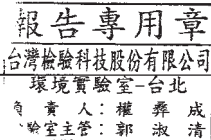 報告專用章
台灣檢驗科技股份有限公司
環境實驗室-台北
負責人：權彝成
驗室主管：郭淑清